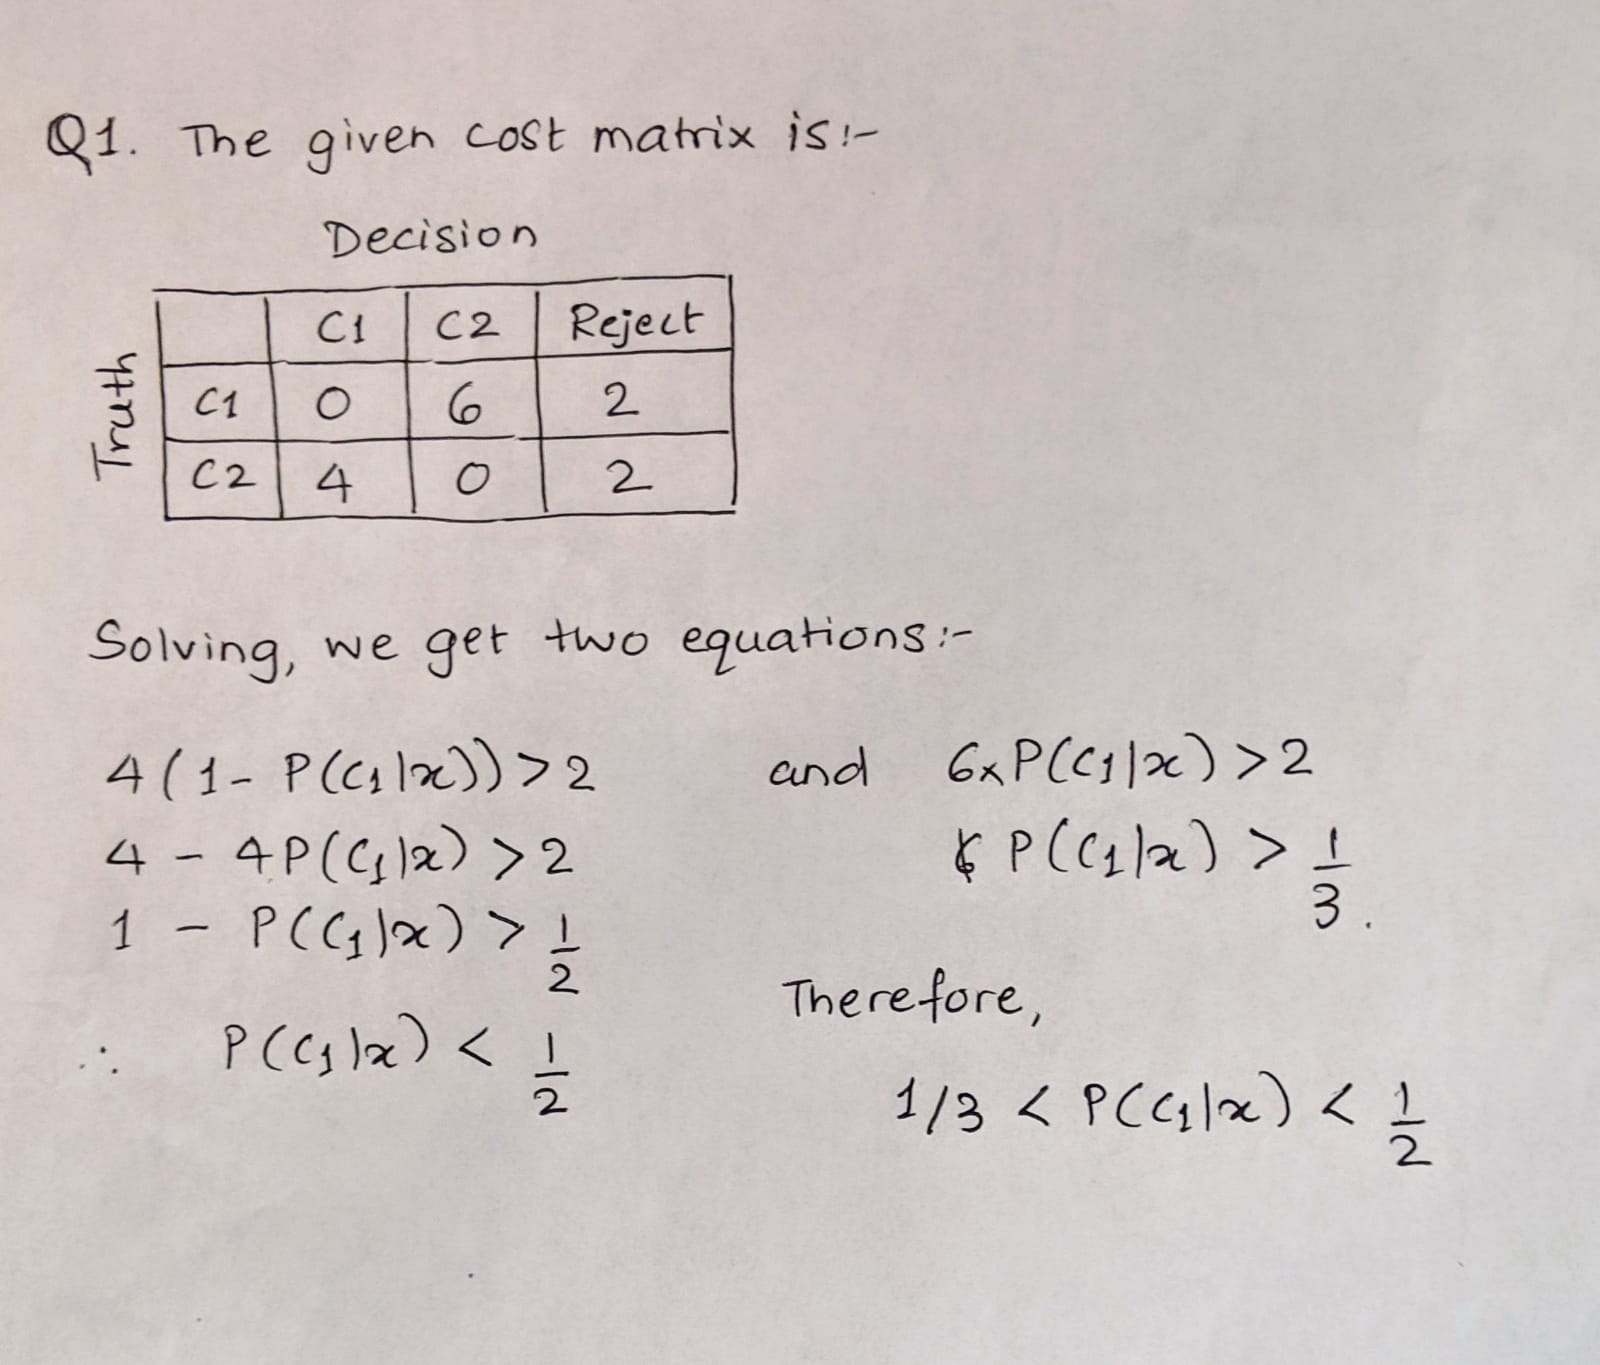 Q1. The given cost matrix is:-
Decision
Truth
C1 C2 Reject
C1 0 6 2
C2 4 0 2
Solving, we get two equations:-
4(1- P(C1|x))>2 and 6xP(C1|x)>2
4 - 4P(C1|x) >2 P(C1|x) > 1/3.
1 - P(C1|x) > 1/2
Therefore,
∴ P(C1|x) < 1/2
1/3 < P(C1|x) < 1/2